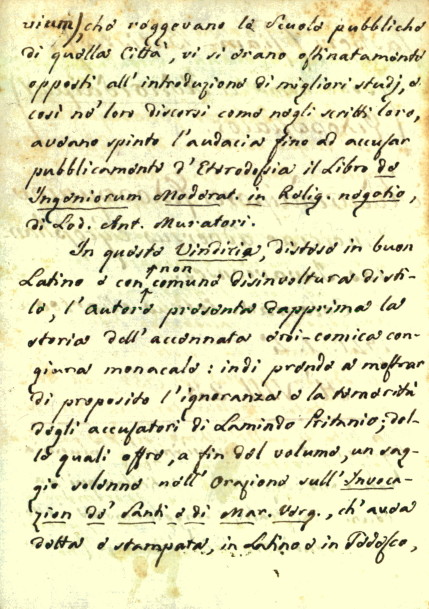 vium), che reggevano le Scuole pubbliche
di quella Città, vi si erano ostinatamente
opposti all'introduzione di migliori studj, e
così ne' loro discorsi come negli scritti loro,
aveano spinto l'audacia fino ad accusar
pubblicamente d'Eterodossia il Libro de
Ingeniorum Moderat. in Relig. negotio,
di Lod. Ant. Muratori.
In queste Vindicie, distese in buon
Latino e con non comune disinvoltura di sti-
le, l'Autore presenta dapprima la
storia dell'accennata eroi-comica con-
giura monacale: indi prende a mostrar
di proposito l'ignoranza e la temerità
degli accusatori di Lamindo Pritanio; del-
le quali offre, a fin del volume, un sag-
gio solenne nell'Orazione sull'Invoca-
zion de' Santi e di Mar. Verg., ch'avea
detta e stampata, in Latino e in Tedesco,